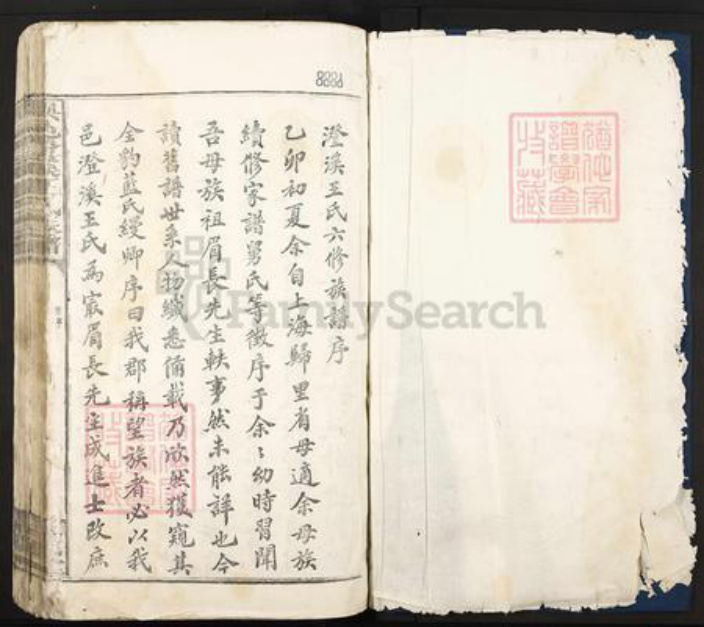 澄溪王氏六修族譜序
乙卯初夏余自上海歸里省母適余母族
續修家譜舅氏等徵序于余〻幼時習聞
吾母族祖眉長先生軼事然未能詳也今
讀舊譜世系人物纖悉備載乃欣然獲窺其
全豹藍氏縵卿序曰我郡稱望族者必以我
邑澄溪王氏為最眉長先生成進士改庶
FamilySearch